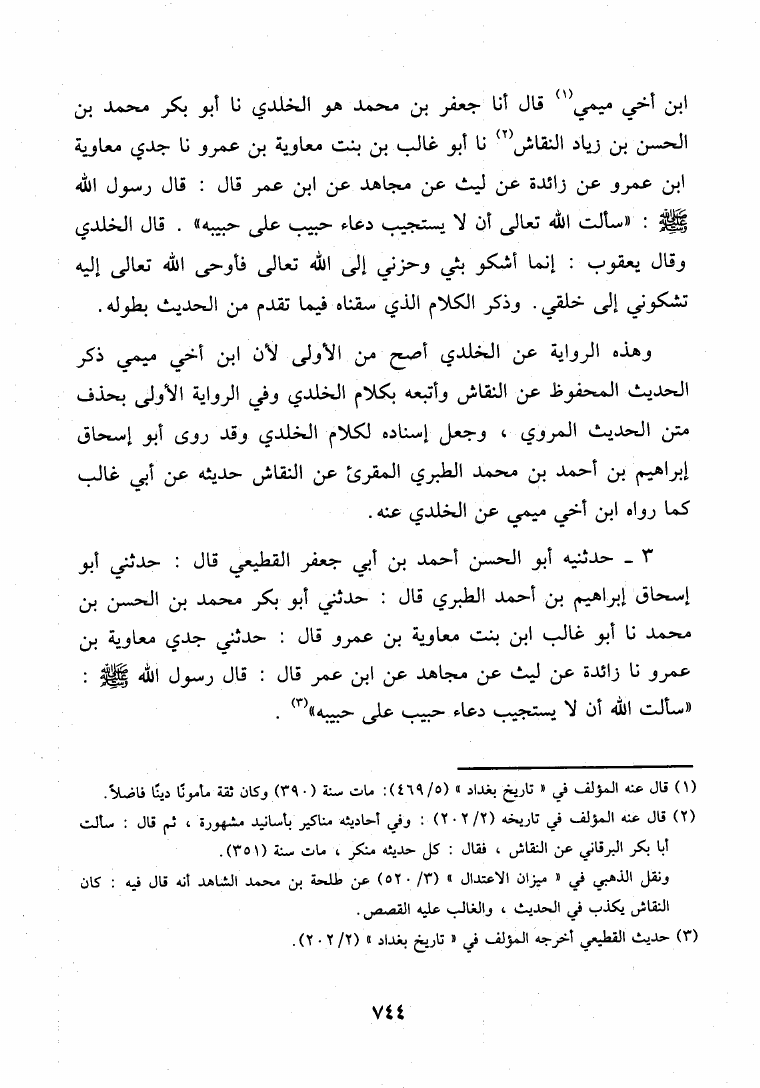 ابن أخي ميمي(١) قال أنا جعفر بن محمد هو الخلدي نا أبو بكر محمد بن
الحسن بن زياد النقاش(٢) نا أبو غالب بن بنت معاوية بن عمرو نا جدي معاوية
ابن عمرو عن زائدة عن ليث عن مجاهد عن ابن عمر قال : قال رسول الله
ﷺ : «سألت الله تعالى أن لا يستجيب دعاء حبيب على حبيبه» . قال الخلدي
وقال يعقوب : إنما أشكو بثي وحزني إلى الله تعالى فأوحى الله تعالى إليه
تشكوني إلى خلقي . وذكر الكلام الذي سقناه فيما تقدم من الحديث بطوله .
وهذه الرواية عن الخلدي أصح من الأولى لأن ابن أخي ميمي ذكر
الحديث المحفوظ عن النقاش وأتبعه بكلام الخلدي وفي الرواية الأولى بحذف
متن الحديث المروي ، وجعل إسناده لكلام الخلدي وقد روى أبو إسحاق
إبراهيم بن أحمد بن محمد الطبري المقرئ عن النقاش حديثه عن أبي غالب
كما رواه ابن أخي ميمي عن الخلدي عنه .
٣ ـ حدثنيه أبو الحسن أحمد بن أبي جعفر القطيعي قال : حدثني أبو
إسحاق إبراهيم بن أحمد الطبري قال : حدثني أبو بكر محمد بن الحسن بن
محمد نا أبو غالب ابن بنت معاوية بن عمرو قال : حدثني جدي معاوية بن
عمرو نا زائدة عن ليث عن مجاهد عن ابن عمر قال : قال رسول الله ﷺ :
«سألت الله أن لا يستجيب دعاء حبيب على حبيبه»(٣) .
(١) قال عنه المؤلف في « تاريخ بغداد » (٤٦٩/٥): مات سنة (٣٩٠) وكان ثقة مأمونًا دينًا فاضلاً.
(٢) قال عنه المؤلف في تاريخه (٢٠٢/٢) : وفي أحاديثه مناكير بأسانيد مشهورة ، ثم قال : سألت
أبا بكر البرقاني عن النقاش ، فقال : كل حديثه منكر ، مات سنة (٣٥١).
ونقل الذهبي في « ميزان الاعتدال » (٥٢٠/٣) عن طلحة بن محمد الشاهد أنه قال فيه : كان
النقاش يكذب في الحديث ، والغالب عليه القصص.
(٣) حديث القطيعي أخرجه المؤلف في « تاريخ بغداد » (٢٠٢/٢).
٧٤٤